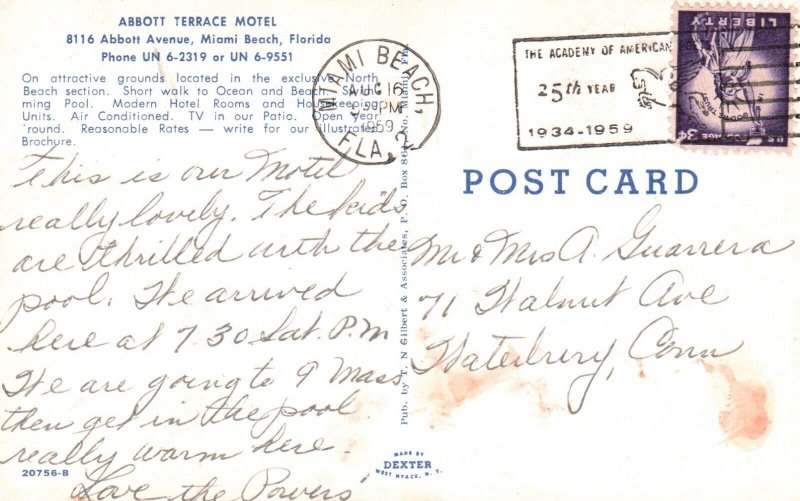 ABBOTT TERRACE MOTEL
8116 Abbott Avenue, Miami Beach, Florida
Phone UN 6-2319 or UN 6-9551
On attractive grounds located in the exclusive North
Beach section. Short walk to Ocean and Beach. Swim-
ming Pool. Modern Hotel Rooms and Housekeeping
Units. Air Conditioned. TV in our Patio. Open Year
'round. Reasonable Rates — write for our illustrated
Brochure.
This is our Motel
really lovely. The kids
are thrilled with the
pool. We arrived
here at 7.30 Sat. P.M
We are going to 9 Mass
then get in the pool
really warm here.
Love the Powers
20756-B
MIAMI BEACH,
AUG 16
PM
1959
FLA. 2
THE ACADEMY OF AMERICAN
25th YEAR
1934-1959
LIBERTY
IN GOD WE TRUST
U.S. POSTAGE 3¢
Pub. by T. N Gilbert & Associates, P. O. Box 86 No. Miami, Fla.
POST CARD
Mr & Mrs A. Guarrera
71 Walnut Ave
Waterbury, Conn
MADE BY
DEXTER
WEST NYACK, N. Y.